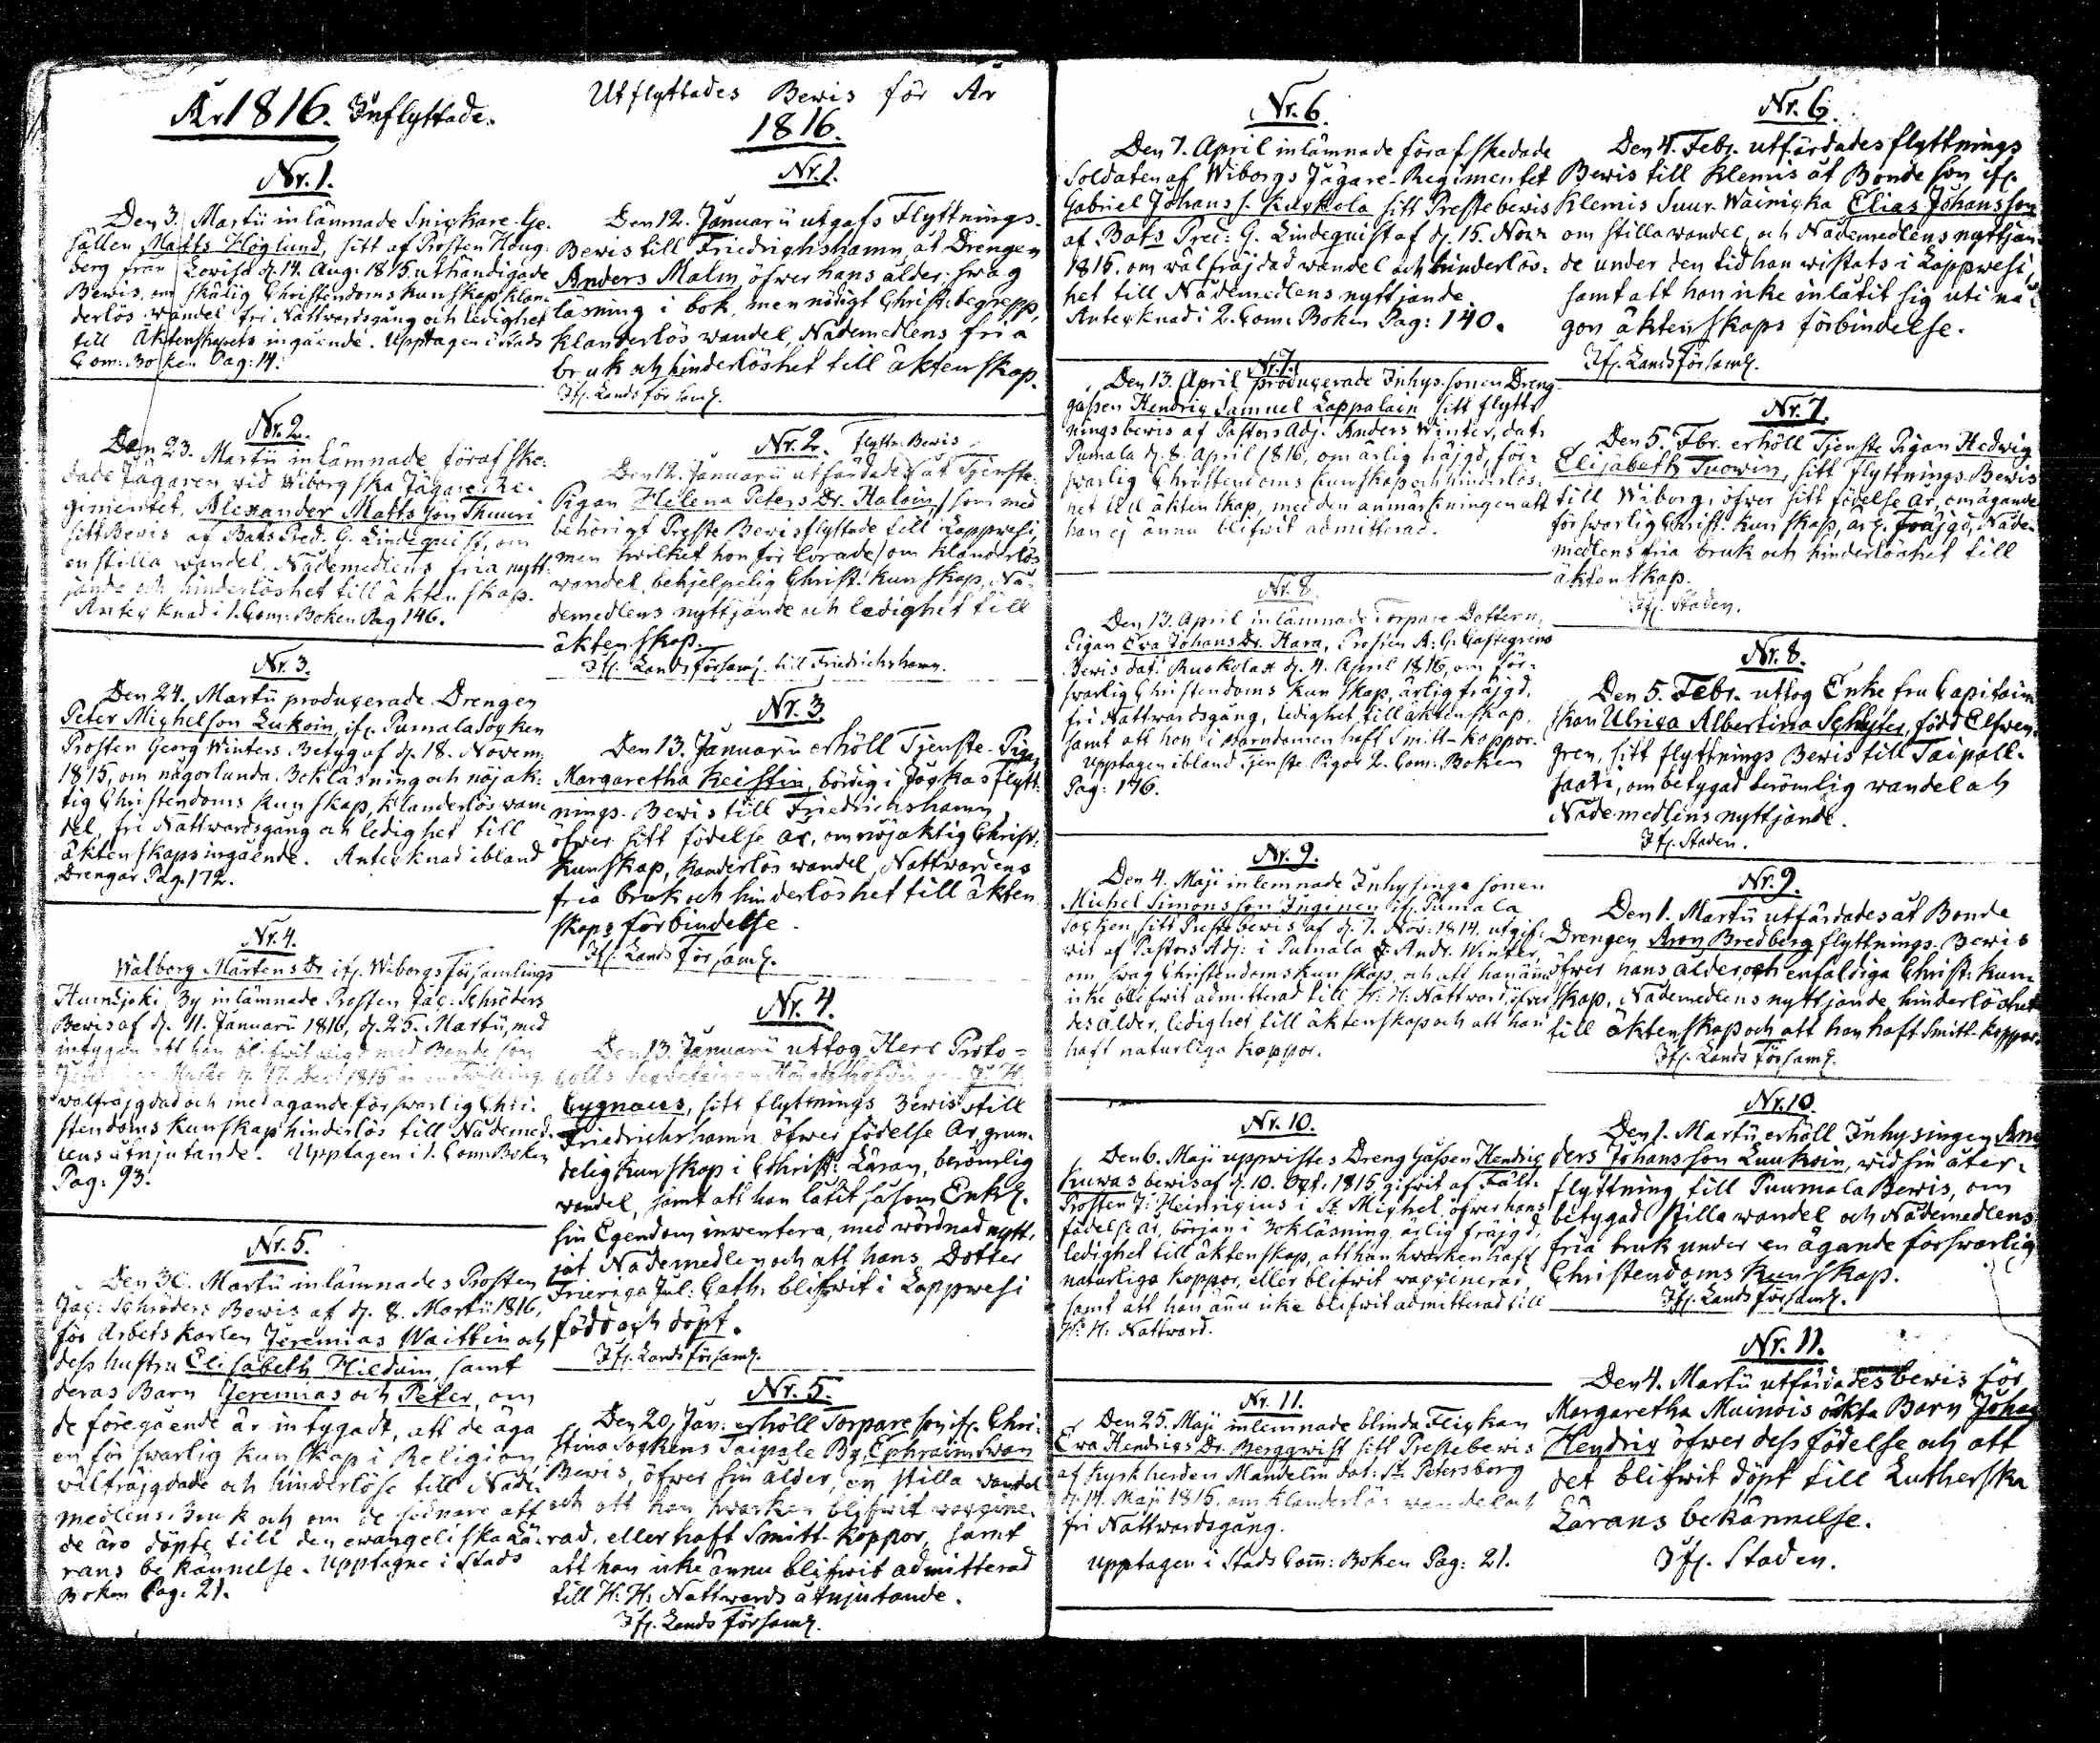 År 1816. Inflyttade.
Nr. 1.
Den 3. Martii inlämnade Snickare-Ge-
sällen Matts Höglund, sitt af Prosten Houg-
berg från Lovisa d. 14. Aug: 1815 uthändigade
Bewis, om skälig Christendoms kunskap, klan-
derlös wandel fri Nattwardsgång och ledighet
till Äktenskapets ingående. Upptagen i Stads
Com: Boken Pag: 14.
Nr. 2.
Den 23. Martii inlämnade förafske-
dade Jägaren vid Wiborgska Jägare Re-
gimentet, Alexander Mattsson Thuuri
sitt Bewis af Bats Pred. G. Lindequist, om
en stilla wandel, Nådemedlens fria nytt-
jande och hinderlöshet till äktenskap.
Antecknad i 1. Com: Boken Pag 146.
Nr. 3.
Den 24. Martii producerade Drengen
Peter Michelson Lukoin, ifr. Pumala Socken
Prosten Georg Winters Betyg af d. 18. Novem:
1815, om någorlunda Bokläsning och nöjak-
tig Christendoms kunskap, klanderlös wan-
del, fri Nattwardsgång och ledighet till
äktenskaps ingående. Antecknad ibland
Drengar Pag. 172.
Nr. 4.
Walborg Mårtens Dr ifr. Wiborgs Församlings
By inlämnade Prosten Jac: Schröders
Bewis af d. 11. Januarii 1816, d. 25. Martii, med
intygan att hon blifwit wigd med Bonde Son
d. 17. Dec: 1815
wälfräjgdad och med ägande förswarlig Chri-
stendoms kunskap hinderlös till Nådemed-
lens åtnjutande. Upptagen i 1. Com: Boken
Pag: 93.
Nr. 5.
Den 30. Martii inlämnades Prosten
Jac: Schröders Bewis af d. 8. Martii 1816,
för Arbetskarlen Jeremias Waittin och
dess hustru Elisabeth Hildain, samt
deras Barn Jeremias och Peter, om
de föregående är intygadt, att de äga
en förswarlig kunskap i Religion,
wälfräjgdade och hinderlöse till Nåde-
medlens Bruk och om de sednare att
de äro döpte till den ewangeliska Lä-
rans bekännelse. Upptagne i Stads
Boken Pag: 21.
Utflyttades Bewis för År
1816.
Nr. 1.
Den 12. Januarii utgafs Flyttnings-
Bewis till Friedrichshamn åt Drengen
Anders Malin, öfwer hans ålder, swag
läsning i bok, men nödigt Christ: begrepp,
klanderlös wandel, Nådemedlens fria
bruk och hinderlöshet till äktenskap.
Ifr. Lands församl.
Nr. 2. Flyttn. Bewis
Den 12. Januarii utfärdades åt Tjenste-
Pigan Helena Peters Dr. Haloin, som med
behörigt Preste Bewis flyttade till Lappwesi,
men hwilket hon förlorade/ om klanderlös
wandel, behjelpelig Christ: kunskap, Nå-
demedlens nyttjande och ledighet till
äktenskap.
Ifr. Landsförsaml. till Friedrichshamn.
Nr. 3.
Den 13. Januarii erhöll Tjenste-Pigan
Margaretha Keistin, bördig i Jockas Flytt-
nings-Bewis till Friedrichshamn
öfwer sitt födelse år, om nöjaktig Christ:
kunskap, klanderlös wandel, Nattwardens
fria bruk och hinderlöshet till äkten-
skaps förbindelse.
Ifr. Lands församl.
Nr. 4.
Den 13. Januarii uttog Herr Proto-
colls Secreteraren
Cygnæus, sitt flyttnings Bewis till
Friedrichshamn öfwer födelse År, grun-
delig kunskap i Christ: Läran, berömlig
wandel, samt att han låtit såsom Enkl.
sin Egendom inwentera, med wördnad nytt-
jat Nådemedlen och att hans Dotter
Fririca Jul: Cath: blifwit i Lappwesi
född och döpt.
Ifr. Landsförsaml.
Nr. 5.
Den 20. Jan: erhöll Torpare son ifr. Chri-
stina Sockens Taipale By, Ephraim Swan
Bewis, öfwer sin ålder, en stilla wandel
och att han hwarken blifwit waccine-
rad, eller haft Smitt-Koppor, samt
att han icke ännu blifwit admitterad
till H: H: Nattwards åtnjutande.
Ifr. Lands församl.
Nr. 6.
Den 7. April inlämnade förafskedade
Soldaten af Wiborgs Jägare-Regimentet
Gabriel Johans s. Kaykola sitt Prestebewis
af Bats Pred: G. Lindequist af d. 15. Novr
1815, om wälfräjdad wandel och hinderlös-
het till Nådemedlens nyttjande.
Antecknad i 2. Com: Boken Pag: 140.
Nr. 7.
Den 13. April producerade Inhys-sonen Dreng-
gossen Hendric Samuel Lappalain sitt flytt-
ningsbewis af Pastors Adj. Anders Winter, dat.
Pumala d. 8. April 1816, om ärlig fräjgd, för-
swarlig Christendoms kunskap och hinderlös-
het till äktenskap, med den anmärkningen att
han ej ännu blifwit admitterad.
Nr. 8.
Den 13. April inlämnade Torpare Dottern,
Pigan Eva Johans Dr. Hara, Prosten A. G. Gastegrens
Bewis dat: Ruokolax d. 4. April 1816, om för-
swarlig Christendoms kunskap, ärlig fräjgd,
fri Nattwardsgång, ledighet till äktenskap,
samt att hon i barndomen haft Smitt-koppor.
Upptagen ibland Tjenste Pigor 2. Com: Boken
Pag: 176.
Nr. 9.
Den 4. Maji inlemnade Inhysinge sonen
Michel Simonsson Inginen ifr. Pumala
Socken, sitt Prestebewis af d. 7. Nov: 1814, utgif-
wit af Pastors Adj: i Pumala Andr. Winter,
om swag Christendoms kunskap och att han ännu
icke blifwit admitterad till H: H: Nattward, öfwer
des ålder, ledighet till äktenskap och att han
haft naturliga koppor.
Nr. 10.
Den 6. Maji uppwistes Dreng Gossen Hendric
Kuwas bewis af d. 10. Oct: 1815, gifwit af Fält-
Prosten J: Heinricius i St. Michel, öfwer hans
födelse år, början i Bokläsning, ärlig fräjgd,
ledighet till äktenskap, att han hwarken haft
naturliga koppor, eller blifwit waccinerad,
samt att han ännu icke blifwit admitterad till
H: H: Nattward.
Nr. 11.
Den 25. Maji inlemnade blinda Flickan
Eva Hendrics Dr. Berggwist sitt Prestebewis
af Kyrkherden Mandelin dat: St. Petersborg
d. 14. Maji 1815, om klanderlös wandel och
fri Nattwardsgång.
Upptagen i Stads Com: Boken Pag: 21.
Nr. 6.
Den 4. Febr. utfärdades flyttnings
Bewis till Klemis åt Bonde son ifr.
Klemis Suur-Wainicka Elias Johansson
om stilla wandel, och Nådemedlens nyttjan-
de under den tid han wistats i Lappwesi,
samt att han icke inlåtit sig uti nå-
gon äktenskaps förbindelse.
Ifr. Landsförsaml.
Nr. 7.
Den 5. Fbr. erhöll Tjenste Pigan Hedwig
Elisabeth Tuowin, sitt flyttnings-Bewis
till Wiborg, öfwer sitt födelse år, om ägande
förswarlig Christ: kunskap, ärl. fräjgd, Nåde-
medlens fria bruk och hinderlöshet till
äktenskap.
Ifr. Staden.
Nr. 8.
Den 5. Febr. uttog Enke fru Capitain-
skan Ulrica Albertina Schlyter, född Elfwen-
gren, sitt flyttnings Bewis till Taipall-
saari, om betygad berömlig wandel och
Nådemedlens nyttjande.
Ifr. Staden.
Nr. 9.
Den 1. Martii utfärdades åt Bonde
Drengen Aron Bredberg flyttnings-Bewis
öfwer hans ålder, och enfaldiga Christ: kun-
skap, Nådemedlens nyttjande, hinderlöshet
till äktenskap och att han haft Smitt-koppor.
Ifr. Lands församl.
Nr. 10.
Den 1. Martii erhöll Inhysingen An-
ders Johansson Luukoin, wid sin åter-
flyttning till Puumala Bewis, om
betygad stilla wandel och Nådemedlens
fria bruk under en ägande förswarlig
Christendoms kunskap.
Ifr. Lands församl.
Nr. 11.
Den 4. Martii utfärdades bewis för
Margaretha Muinois oäkta Barn Johan
Hendric öfwer dess födelse och att
det blifwit döpt till Lutherska
Lärans bekännelse.
Ifr. Staden.